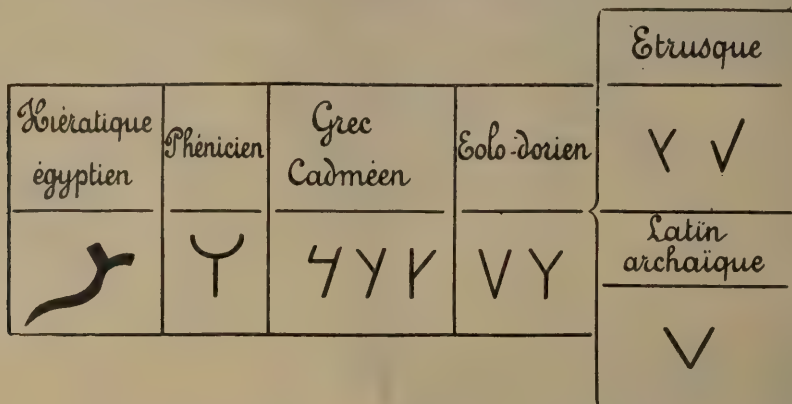 Hiératique
égyptien
Phénicien
Grec
Cadméen
Eolo-dorien
Etrusque
Latin
archaïque